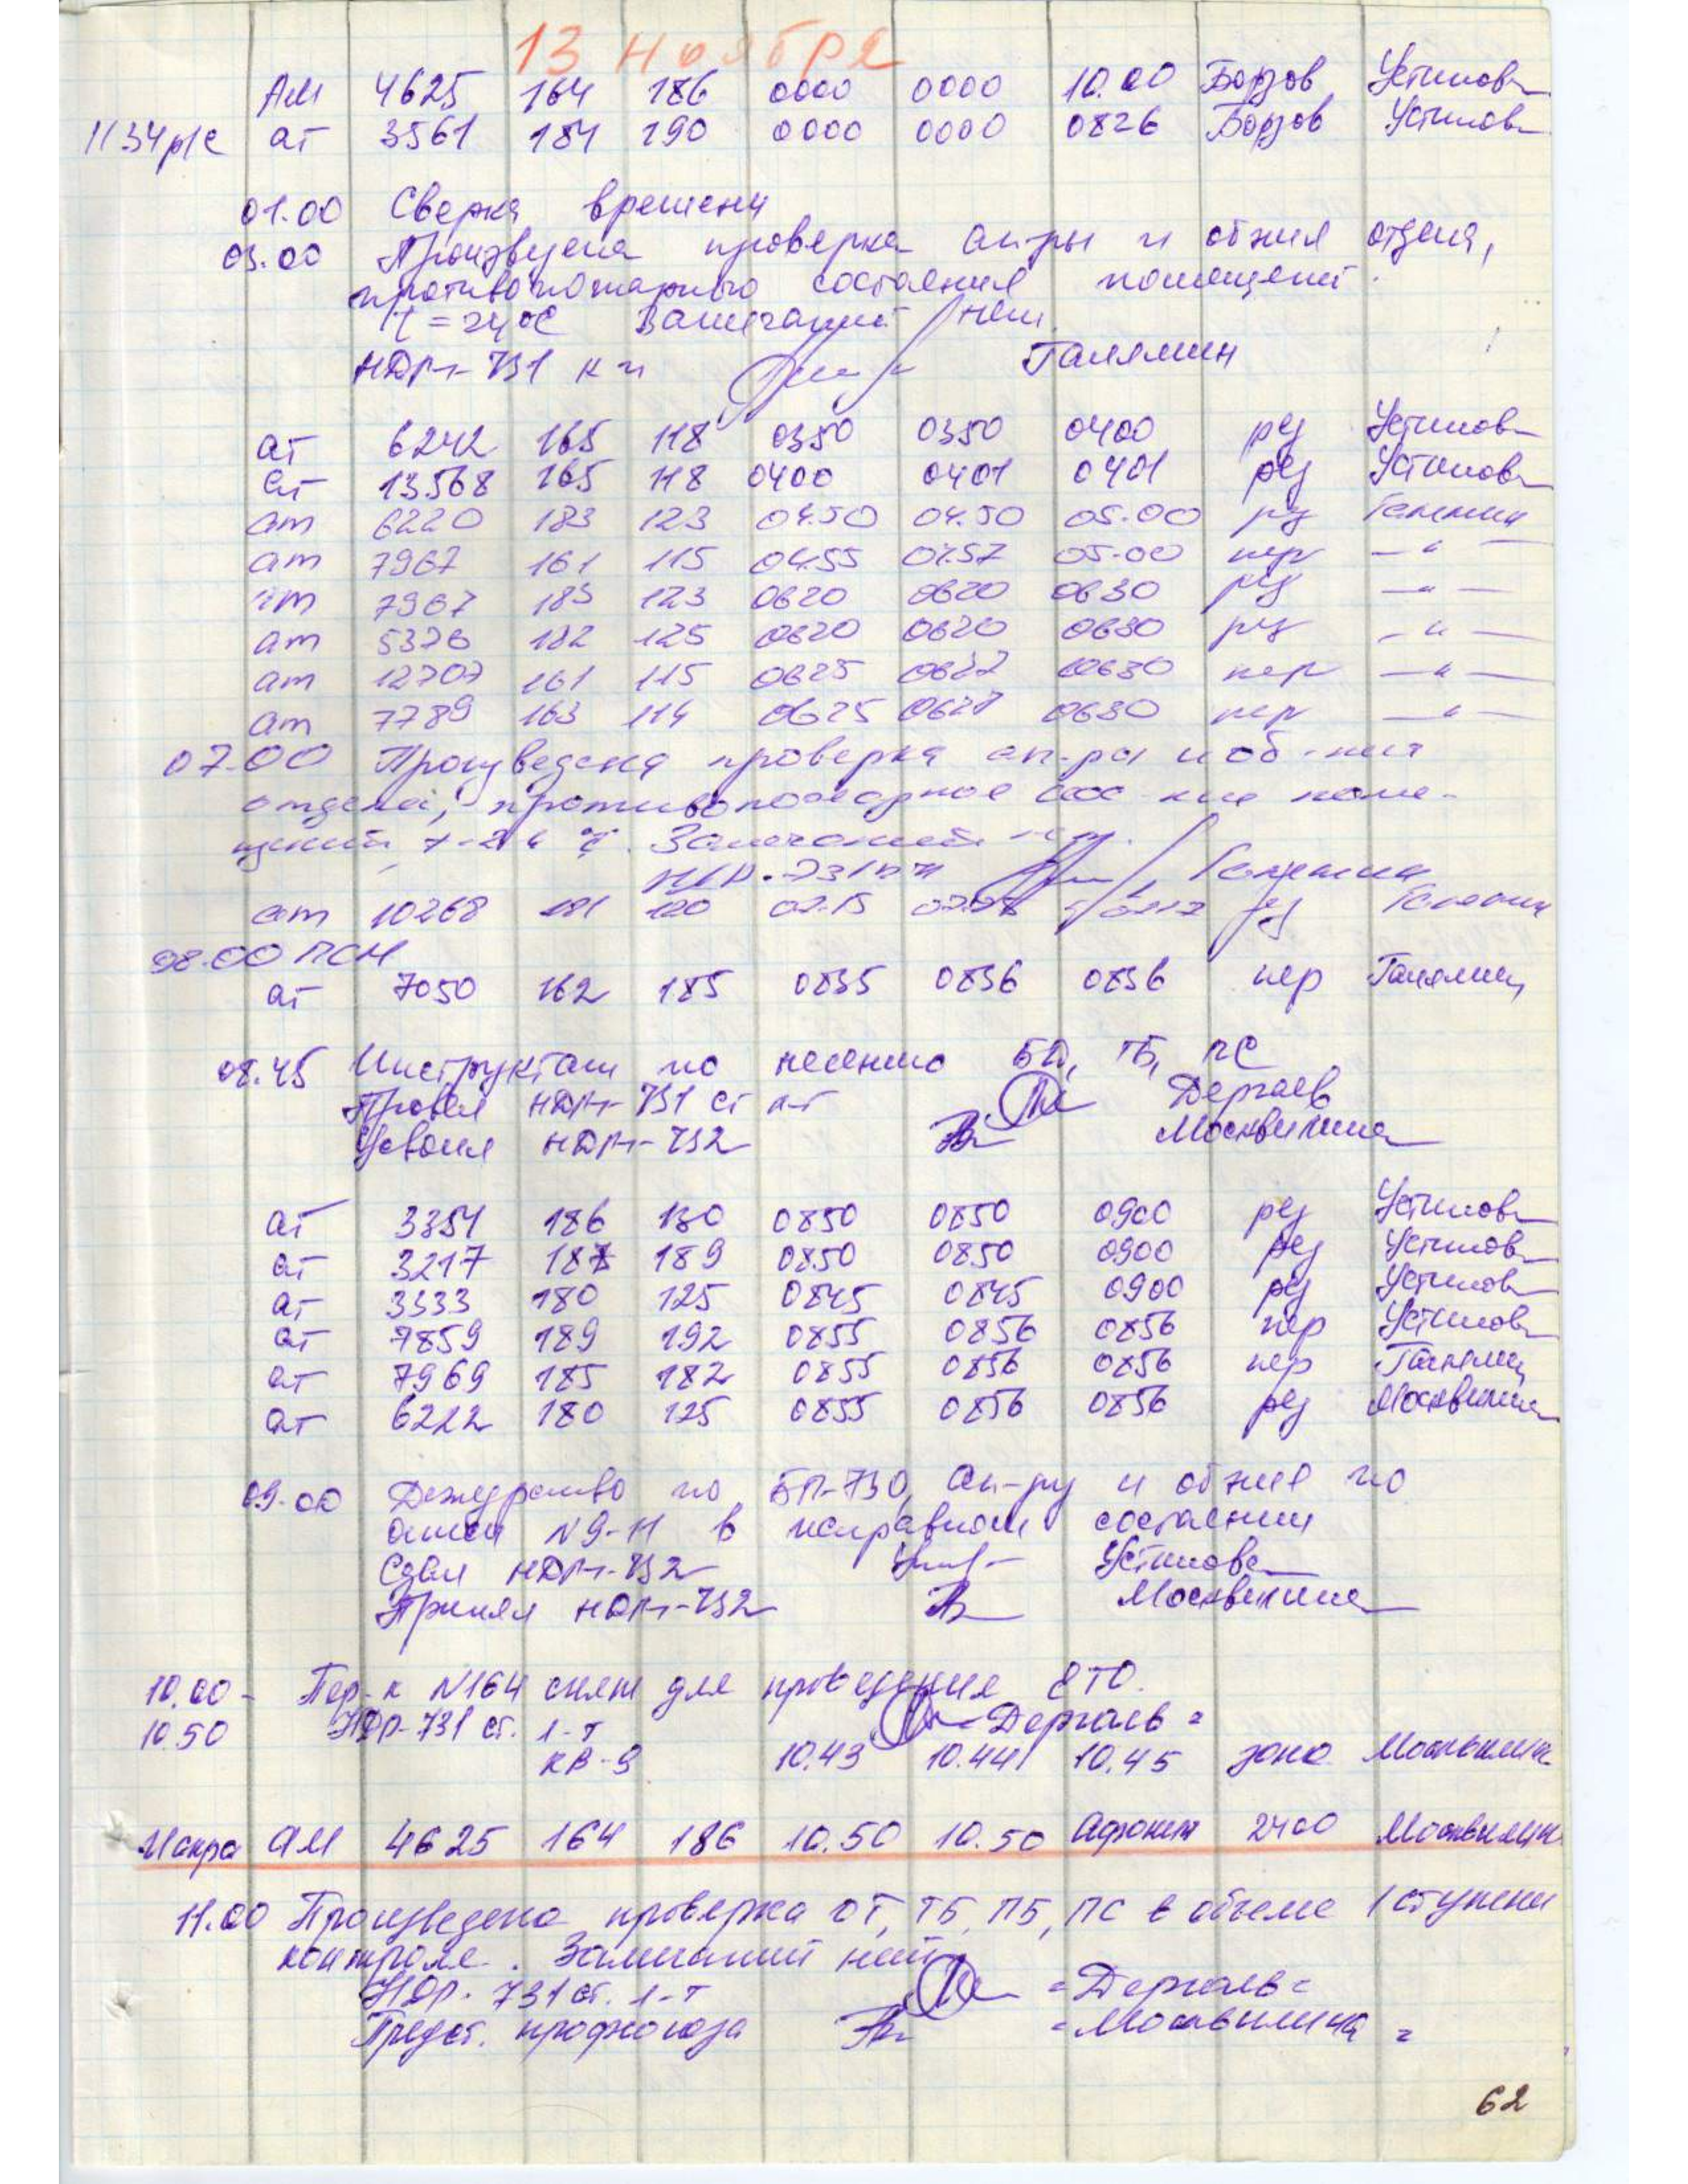 13 ноября
АМ 4625 164 186 0000 0000 10.00 Борзов Устинова
1134 р/с ат 3561 184 190 0000 0000 0826 Борзов Устинова
01.00 Сверка времени
03.00 Произведена проверка ап-ры и обжил отдела,
противопожарного состояния помещений.
t = 24°С Замечаний нет.
НДР-731 к-н Галямин
ат 6242 165 118 0350 0350 0400 рез Устинова
ат 13568 165 118 0400 0401 0401 рез Устинова
ат 6220 183 123 04.50 04.50 05.00 рез Галямин
ат 7967 161 115 0455 0457 05-00 пер —〃—
ат 7967 183 123 0620 0620 0630 рез —〃—
ат 5376 182 125 0620 0620 0630 рез —〃—
ат 12707 161 115 0625 0627 0630 пер —〃—
ат 7789 163 114 0625 0627 0630 пер —〃—
07.00 Произведена проверка ап-ры и об-ния
отдела, противопожарное сос-ние поме-
щений Замечаний нет.
Галямин
ат 10268 181 120 07.15 рез Галямин
08.00 ПСН
ат 7050 162 185 0835 0836 0836 пер Галямин
08.45 Инструктаж по несению БД, ТБ, ПС
Провел НДР-731 ст л-т Дергаев
Усвоил НДР-732 Москвилина
ат 3351 186 130 0850 0850 0900 рез Устинова
ат 3217 187 189 0850 0850 0900 рез Устинова
ат 3333 180 125 0845 0845 0900 рез Устинова
ат 7859 189 192 0855 0856 0856 пер Устинова
ат 7969 185 182 0855 0856 0856 пер Галямин
ат 6222 180 125 0855 0856 0856 рез Москвилина
09.00 Дежурство по БП-730, Ап-ру и обжил по
описи N 9-11 в исправном состоянии
Сдал НДР-732 Устинова
Принял НДР-732 Москвилина
10.00 - Пер-к N164 снят для проведения ЕТО.
10.50 НДР-731 ст. л-т =Дергаев=
КВ-9 10.43 10.44 10.45 зона Москвилина
Искра АМ 4625 164 186 10.50 10.50 Афонин 2400 Москвилина
11.00 Произведена проверка ОТ, ТБ, ПБ, ПС в объеме 1 ступени
контроля. Замечаний нет
НДР-731 ст. л-т =Дергаев=
Предст. профсоюза =Москвилина=
62